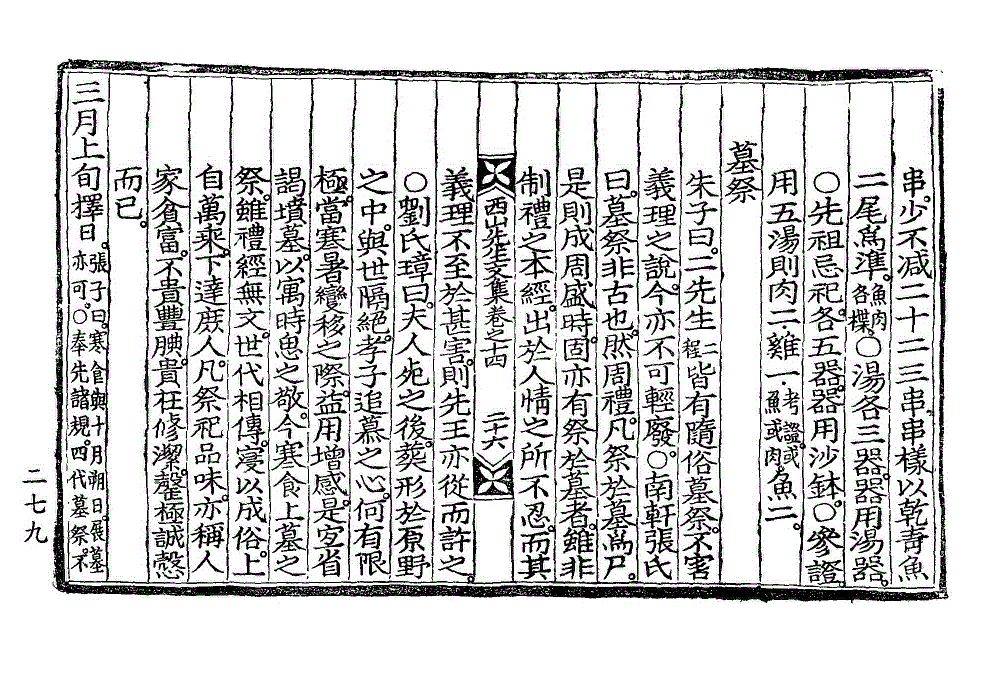 串。少不减二十二三串。串樣以乾靑魚
二尾爲準。魚肉各楪。○湯各三器。器用湯器。
○先祖忌祀。各五器。器用沙鉢。○參證。
用五湯則肉二雞一。考證。或魚或肉。魚二。
墓祭
朱子曰。二先生二程皆有隨俗墓祭。不害
義理之說。今亦不可輕廢。○南軒張氏
曰。墓祭非古也。然周禮。凡祭於墓爲尸。
是則成周盛時。固亦有祭於墓者。雖非
制禮之本經。出於人情之所不忍。而其
西山先生文集卷之十四 二十六
義理不至於甚害。則先王亦從而許之。
○劉氏璋曰。夫人死之後。葬形於原野
之中。與世隔絶。孝子追慕之心。何有限
極。當寒暑變移之際。益用增感。是宜省
謁墳墓。以寓時思之敬。今寒食上墓之
祭。雖禮經無文。世代相傳。寖以成俗。上
自萬乘。下達庶人。凡祭祀品味。亦稱人
家貧富。不貴豐腆。貴在修潔。罄極誠慤
而已。
三月上旬擇日。張子曰。寒食與十月朔日。展墓亦可。○奉先諸規。四代墓祭。不
二七九